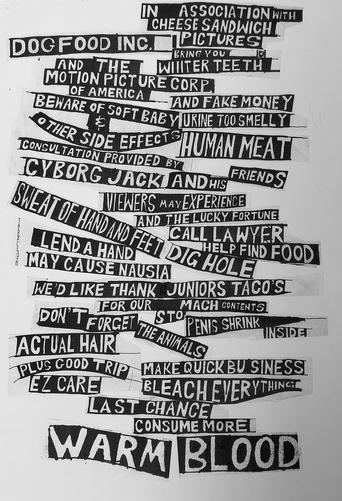 IN ASSOCIATION WITH
CHEESE SANDWICH
DOG FOOD INC. PICTURES
BRING YOU
AND THE WIIITER TEETH
MOTION PICTURE CORP.
OF AMERICA
BEWARE OF SOFT BABY AND FAKE MONEY
& URINE TOO SMELLY
OTHER SIDE EFFECTS
HUMAN MEAT
CONSULTATION PROVIDED BY
CYBORG JACK AND HIS FRIENDS
SWEAT OF HAND AND FEET
VIEWERS MAY EXPERIENCE
AND THE LUCKY FORTUNE
CALL LAWYER
LEND A HAND
HELP FIND FOOD
DIG HOLE
MAY CAUSE NAUSIA
WE'D LIKE THANK JUNIORS TACO'S
FOR OUR MACH CONTENTS
DON'T FORGET STO
PENIS SHRINK INSIDE
THE ANIMALS
ACTUAL HAIR
PLUS GOOD TRIP MAKE QUICK BUSINESS
EZ CARE BLEACH EVERYTHING
LAST CHANCE
CONSUME MORE
WARM BLOOD